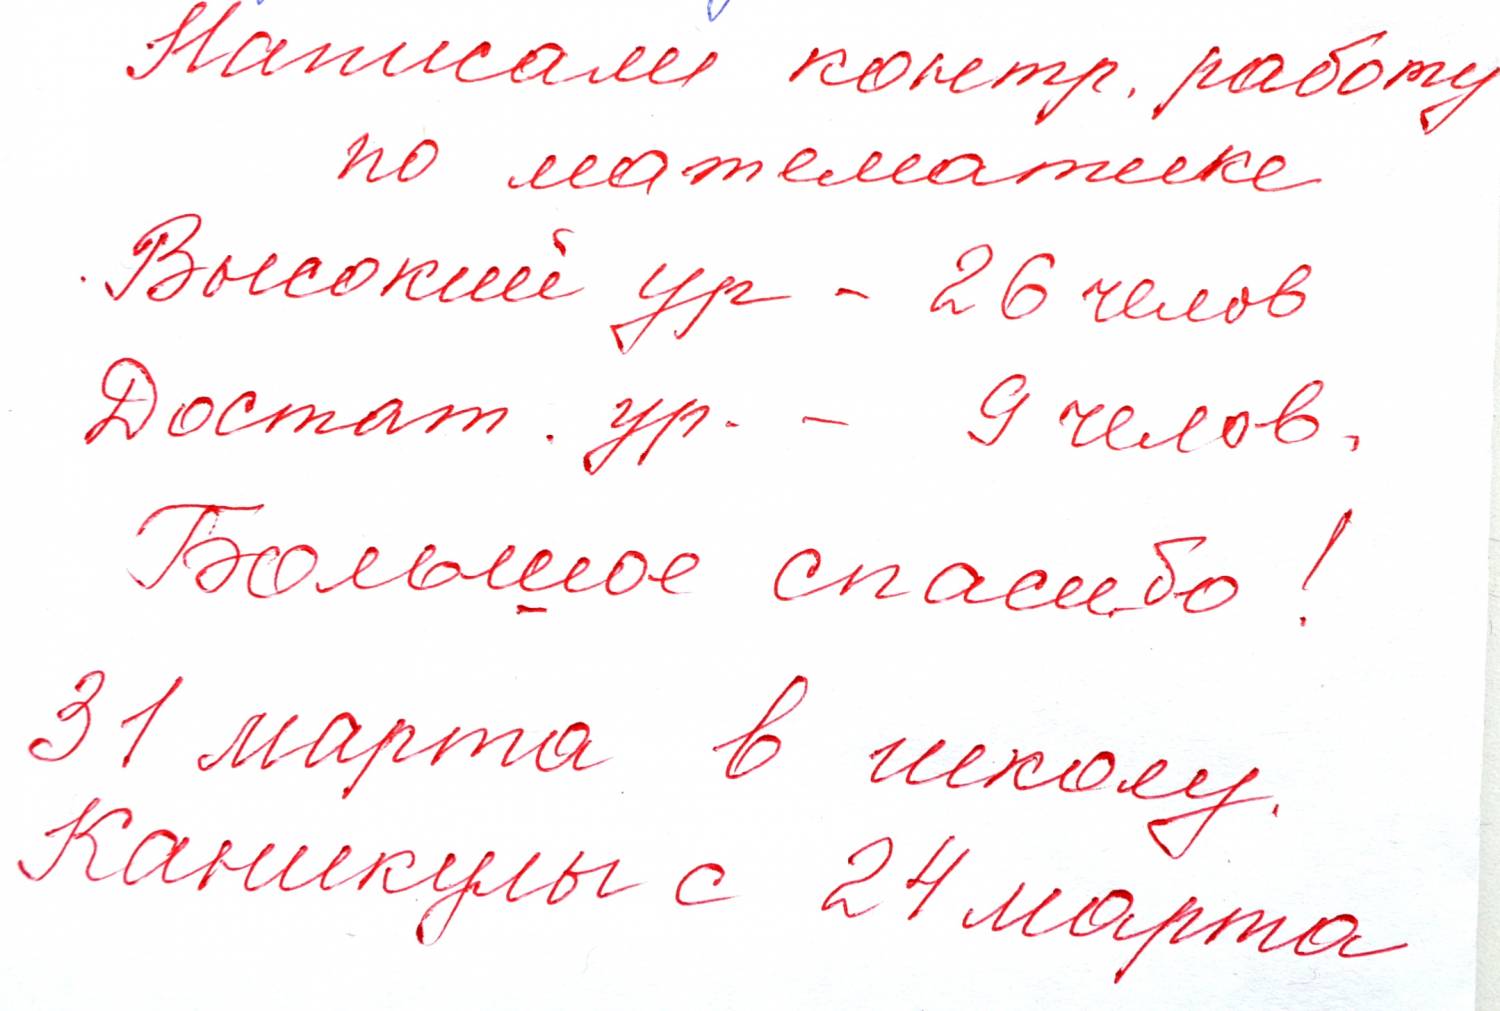 Написали контр. работу
по математике
Высокий ур - 26 челов
Достат. ур. - 9 челов.
Большое спасибо!
31 марта в школу.
Каникулы с 24 марта